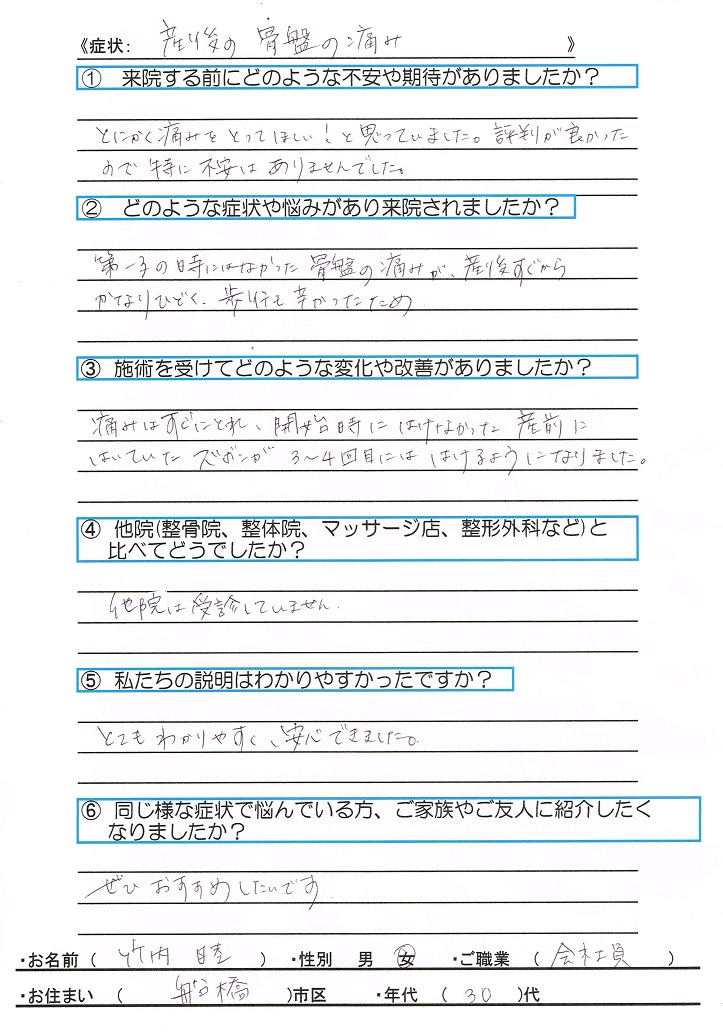 《症状: 産後の骨盤の痛み 》
① 来院する前にどのような不安や期待がありましたか？
とにかく痛みをとってほしい！と思っていました。評判が良かった
ので特に不安はありませんでした。
② どのような症状や悩みがあり来院されましたか？
第一子の時にはなかった骨盤の痛みが、産後すぐから
かなりひどく、歩行も辛かったため
③ 施術を受けてどのような変化や改善がありましたか？
痛みはすぐにとれ、開始時にはけなかった産前に
はいていたズボンが3～4回目にははけるようになりました。
④ 他院(整骨院、整体院、マッサージ店、整形外科など)と
比べてどうでしたか？
他院は受診していません.
⑤ 私たちの説明はわかりやすかったですか？
とてもわかりやすく、安心できました。
⑥ 同じ様な症状で悩んでいる方、ご家族やご友人に紹介したく
なりましたか？
ぜひおすすめしたいです
・お名前 ( 竹内 睦 ) ・性別 男 女 ・ご職業 ( 会社員 )
・お住まい ( 船橋 )市区 ・年代 ( 30 )代